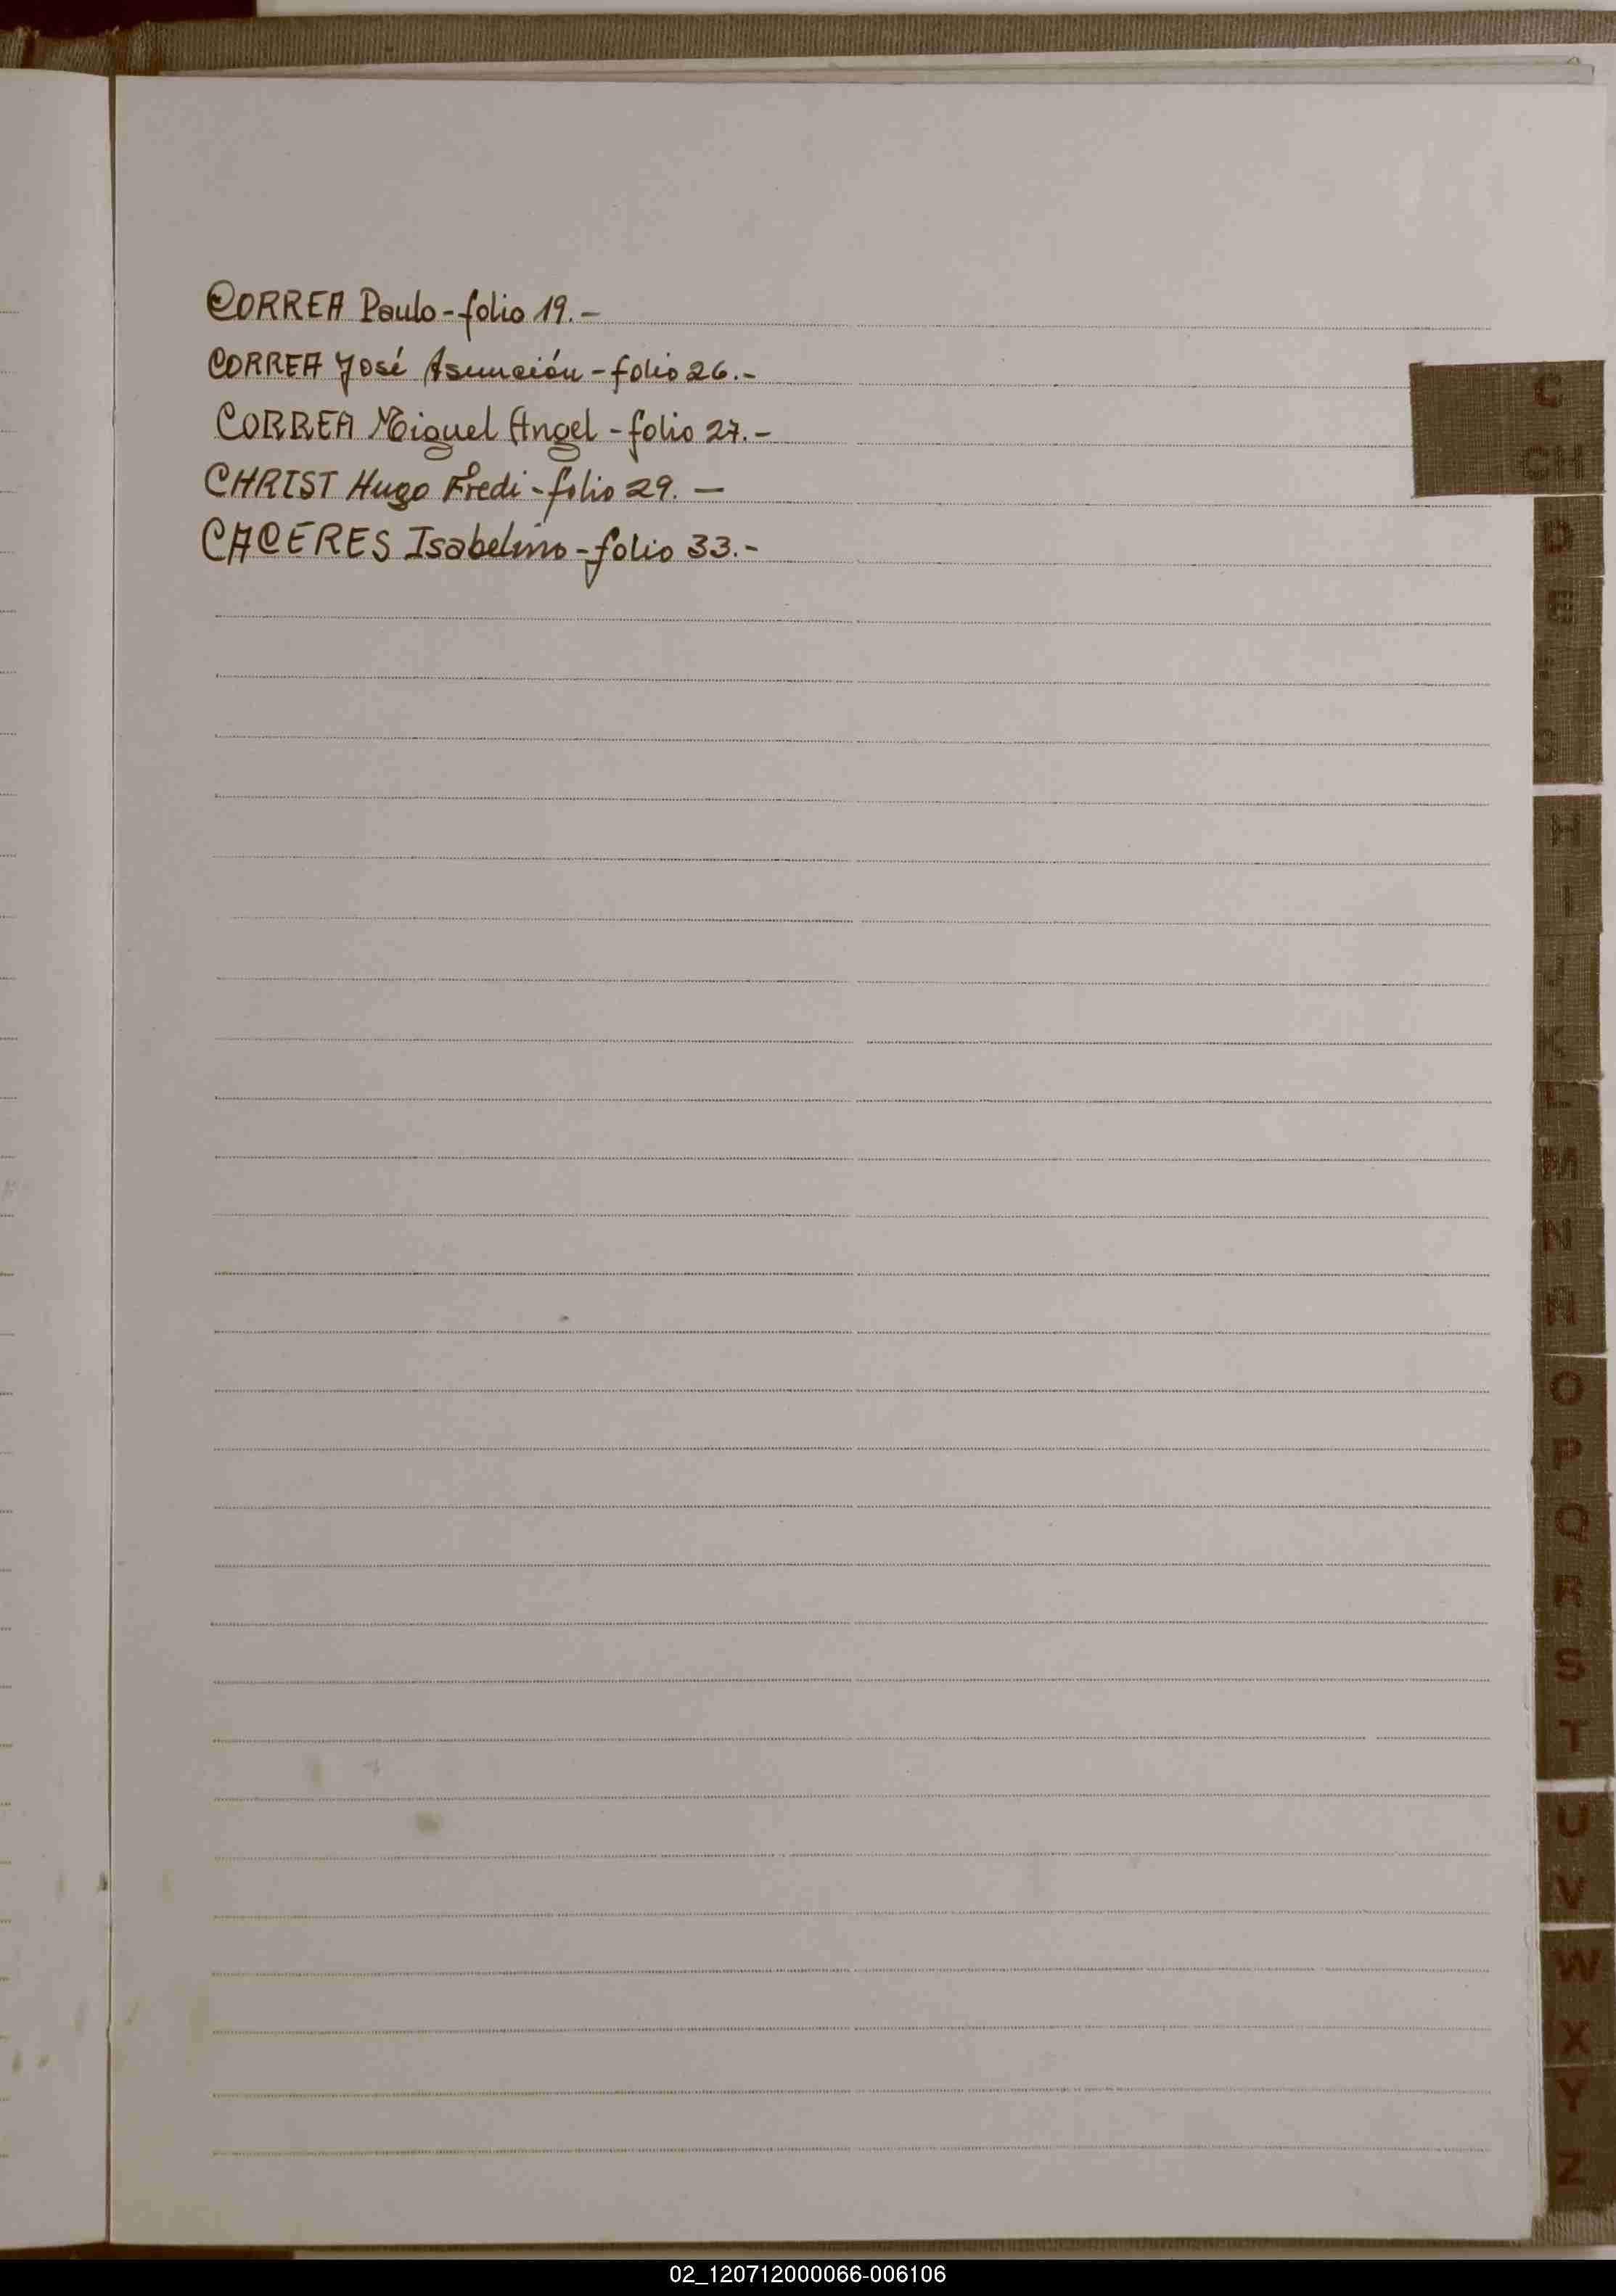 CORREA Paulo - folio 19. -
CORREA José Asunción - folio 26. -
CORREA Miguel Angel - folio 27. -
CHRIST Hugo Fredi - folio 29. -
CACERES Isabelino - folio 33. -
C
CH
D
E
F
G
H
I
J
K
L
M
N
Ñ
O
P
Q
R
S
T
U
V
W
X
Y
Z
02_120712000066-006106